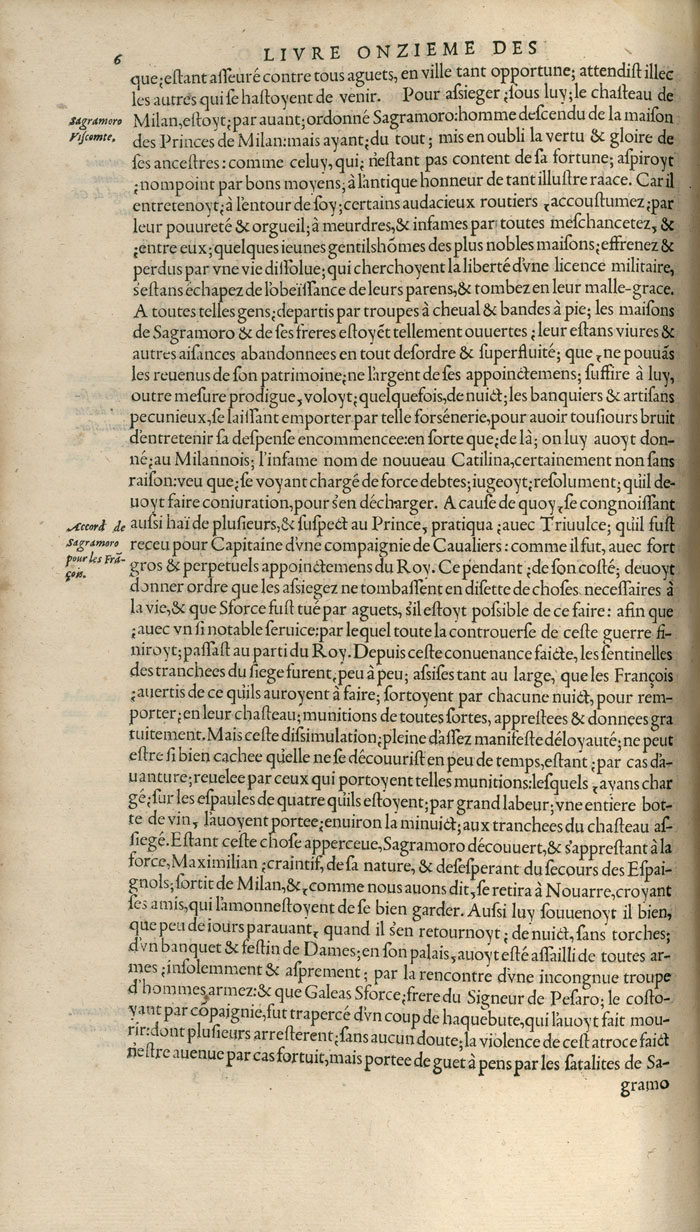 6 LIVRE ONZIEME DES
que;eſtant aſſeuré contre tous aguets, en ville tant opportune; attendiſt illec
les autres qui ſe haſtoyent de venir. Pour aſsieger ;ſous luy; le chaſteau de
Sagramoro
Viſcomte.
Milan,eſtoyt;par auant;ordonné Sagramoro:homme deſcendu de la maiſon
des Princes de Milan:mais ayant;du tout; mis en oubli la vertu & gloire de
ſes anceſtres: comme celuy, qui; n'eſtant pas content de ſa fortune; aſpiroyt
;nompoint par bons moyens;à l'antique honneur de tant illuſtre raace. Car il
entretenoyt;à l'entour de ſoy;certains audacieux routiers ,accouſtumez;par
leur pouureté & orgueil;à meurdres,& infames par toutes meſchancetez, &
;entre eux;quelques ieunes gentilshõmes des plus nobles maiſons;effrenez &
perdus par vne vie diſſolue;qui cherchoyent la liberté d'vne licence militaire,
s'eſtans échapez de l'obeïſſance de leurs parens,& tombez en leur malle-grace.
A toutes telles gens;departis par troupes à cheual & bandes à pie; les maiſons
de Sagramoro & de ſes freres eſtoyẽt tellement ouuertes ;leur eſtans viures &
autres aiſances abandonnees en tout deſordre & ſuperfluité; que ,ne pouuãs
les reuenus de ſon patrimoine;ne l'argent de ſes appoinctemens; ſuffire à luy,
outre meſure prodigue, voloyt;quelquefois,de nuict;les banquiers & artiſans
pecunieux,ſe laiſſant emporter par telle forſénerie,pour auoir touſiours bruit
d'entretenir ſa deſpenſe encommencee:en ſorte que;de là; on luy auoyt don-
né;au Milannois; l'infame nom de nouueau Catilina,certainement non ſans
raiſon:veu que;ſe voyant chargé de force debtes;iugeoyt;reſolument; qu'il de-
uoyt faire coniuration,pour s'en décharger. A cauſe de quoy,ſe congnoiſſant
Accord de
Sagramoro
pour les Frã-
çois.
auſsi haï de pluſieurs,& ſuſpect au Prince, pratiqua ;auec Triuulce; qu'il fuſt
receu pour Capitaine d'vne compaignie de Caualiers: comme il fut, auec fort
gros & perpetuels appoinctemens du Roy. Ce pendant ;de ſon coſté; deuoyt
donner ordre que les aſsiegez ne tombaſſent en diſette de choſes neceſſaires à
la vie,& que Sforce fuſt tué par aguets, s'il eſtoyt poſsible de ce faire: afin que
;auec vn ſi notable ſeruice:par lequel toute la controuerſe de ceſte guerre fi-
niroyt;paſſaſt au parti du Roy. Depuis ceſte conuenance faicte, les ſentinelles
des tranchees du ſiege furent,peu à peu; aſsiſes tant au large, que les François
;auertis de ce qu'ils auroyent à faire; ſortoyent par chacune nuict, pour rem-
porter;en leur chaſteau;munitions de toutes ſortes, appreſtees & donnees gra
tuitement. Mais ceſte diſsimulation;pleine d'aſſez manifeſte déloyauté;ne peut
eſtre ſi bien cachee qu'elle ne ſe découuriſt en peu de temps,eſtant ;par cas d'a-
uanture;reuelee par ceux qui portoyent telles munitions:leſquels ,ayans char
gé;ſur les eſpaules de quatre qu'ils eſtoyent;par grand labeur;vne entiere bot-
te de vin, l'auoyent portee;enuiron la minuict;aux tranchees du chaſteau aſ-
ſiegé.Eſtant ceſte choſe apperceue,Sagramoro découuert,& s'appreſtant à la
force,Maximilian ;craintif, de ſa nature, & deſeſperant du ſecours des Eſpai-
gnols;ſortit de Milan,&,comme nous auons dit,ſe retira à Nouarre,croyant
ſes amis,qui l'amonneſtoyent de ſe bien garder. Auſsi luy ſouuenoyt il bien,
que peu de iours parauant, quand il s'en retournoyt; de nuict, ſans torches;
d'vn banquet & feſtin de Dames;en ſon palais,auoyt eſté aſſailli de toutes ar-
mes ;inſolemment & aſprement; par la rencontre d'vne incongnue troupe
d'hommes armez:& que Galeas Sforce;frere du Signeur de Peſaro; le coſto-
yant par cõpaignie,fut trapercé d'vn coup de haquebute,qui l'auoyt fait mou-
rir:dont pluſieurs arreſterent;ſans aucun doute;la violence de ceſt atroce faict
n'eſtre auenue par cas fortuit,mais portee de guet à pens par les fatalites de Sa-
gramo